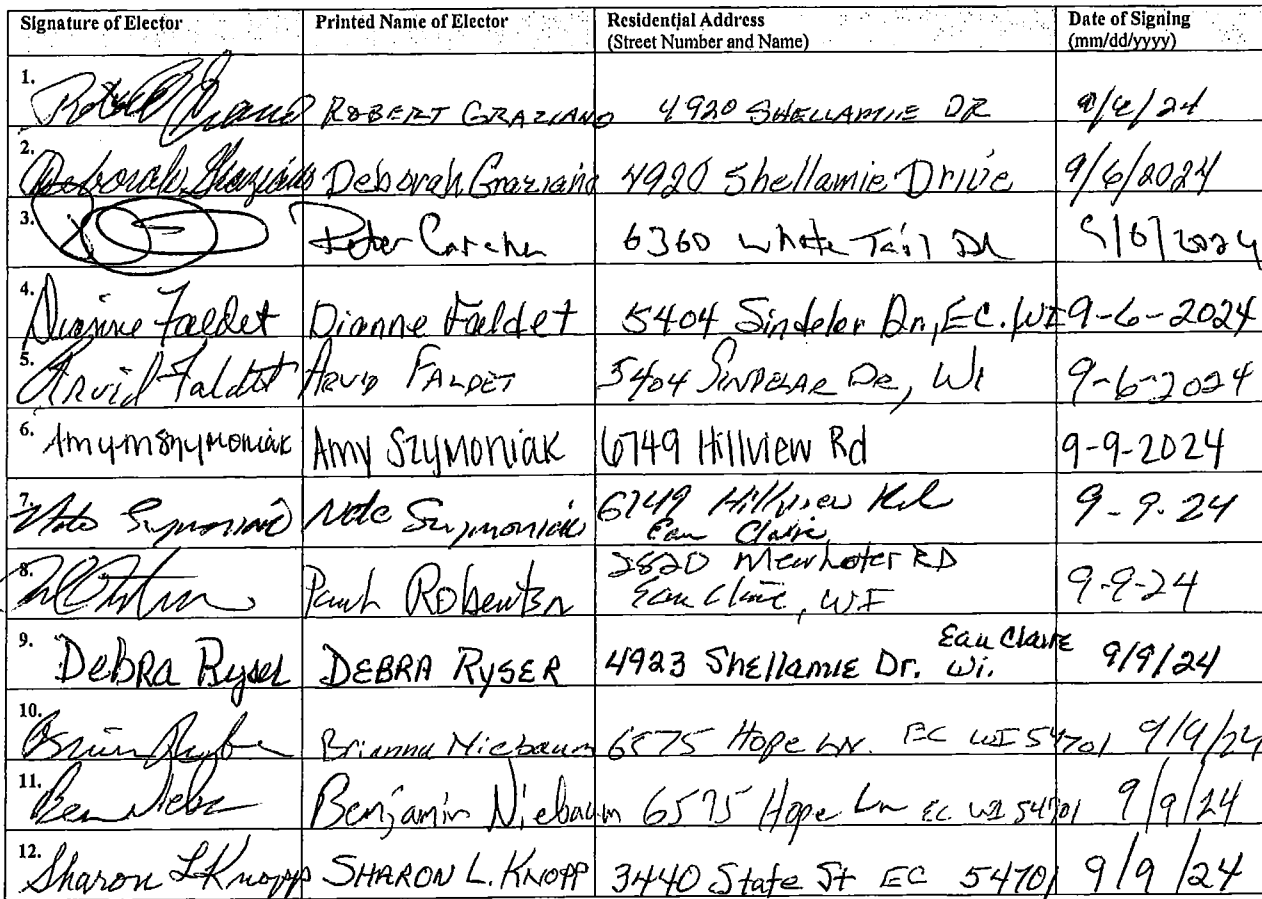 Signature of Elector Printed Name of Elector Residential Address (Street Number and Name) Date of Signing (mm/dd/yyyy)
1. ROBERT GRAZIANO 4920 SHELLAMIE DR 9/6/24
2. Deborah Graziano Deborah Graziano 4920 Shellamie Drive 9/6/2024
3. Peter 6360 White Tail Dr 9/6/2024
4. Dianne Faldet Dianne Faldet 5404 Sindelar Dr, EC. WI 9-6-2024
5. Arvid Faldet ARVID FALDET 5404 SINDELAR DR, WI 9-6-2024
6. Amy m Szymoniak Amy Szymoniak 6749 Hillview Rd 9-9-2024
7. Nate Szymoniak Nate Szymoniak 6749 Hillview Rd
Eau Claire 9-9-24
8. Paul Robertson 2820 RD
Eau Claire, WI 9-9-24
9. Debra Ryser DEBRA RYSER 4923 Shellamie Dr. Eau Claire Wi. 9/9/24
10. Brianna Niebaum 6575 Hope Ln. EC WI 54701 9/9/24
11. Ben Benjamin Niebaum 6575 Hope Ln EC WI 54701 9/9/24
12. Sharon L Knopp SHARON L. KNOPP 3440 State St EC 54701 9/9/24